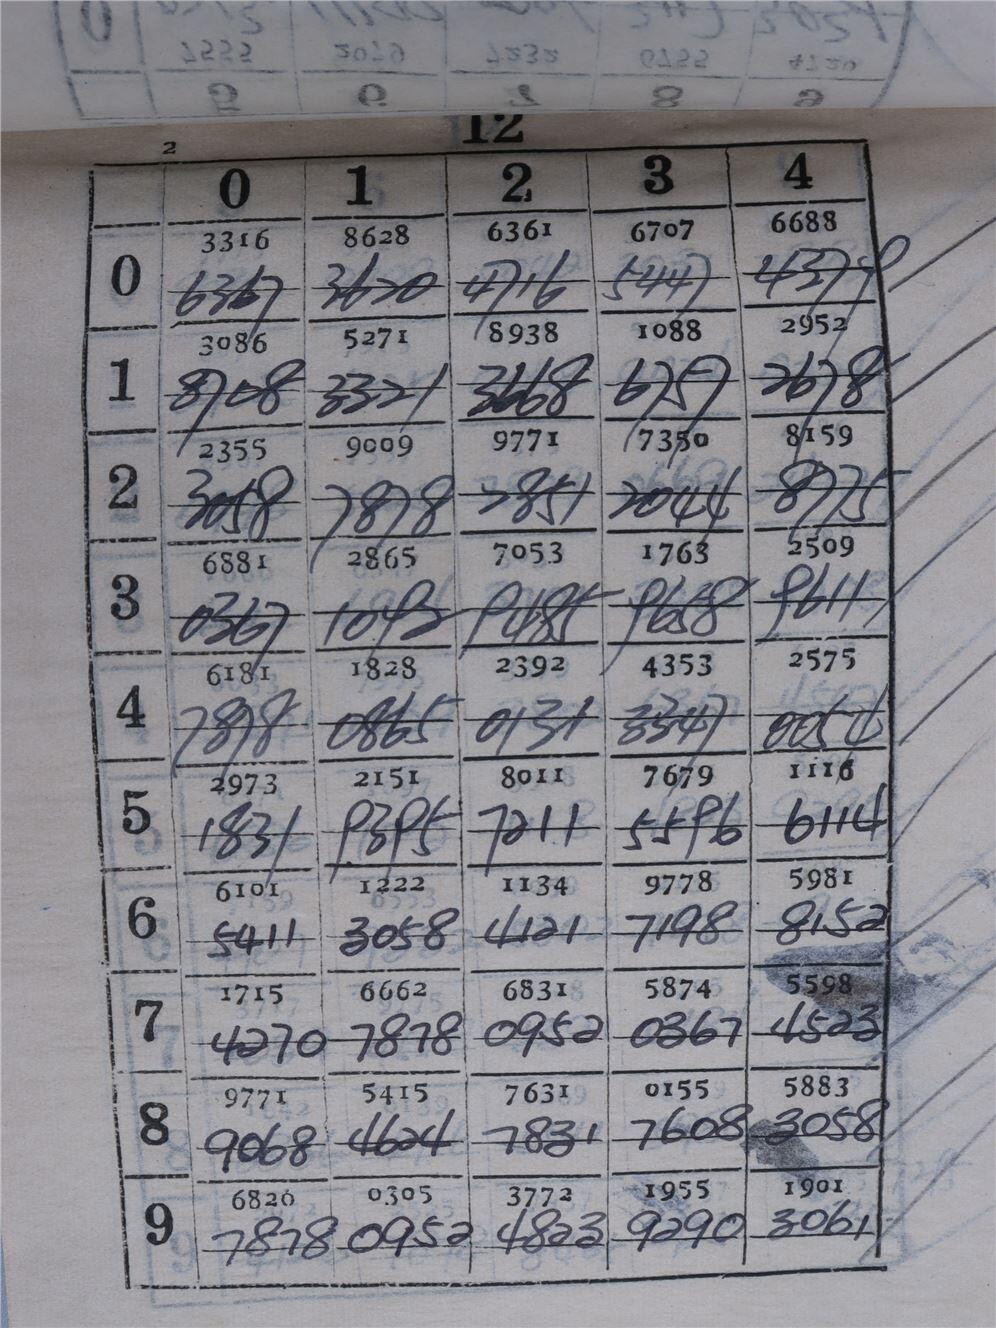 7555 2079 7232 6755 4720
5 6 7 8 9
12
2
0 1 2 3 4
3316 8628 6361 6707 6688
0
6367 3620 4716 5447
3086 5271 8938 1088 2952
1
8708 3321 3668 6757 2678
2355 9009 9771 7350 8159
2
3058 7878 7851 2044 8775
6881 2865 7053 1763 2509
3
0367 1092 9485 9658 9611
6181 1828 2392 4353 2575
4
7878 0865 0131 3347
2973 2151 8011 7679 1116
5
1831 9395 7211 5596 6114
6101 1222 1134 9778 5981
6
5411 3058 4121 7198 8152
1715 6662 6831 5874 5598
7
4270 7878 0952 0367 4523
9771 5415 7631 0155 5883
8
9068 4624 7831 7608 3058
6826 0305 3772 1955 1901
9
7878 0952 4823 9290 3061